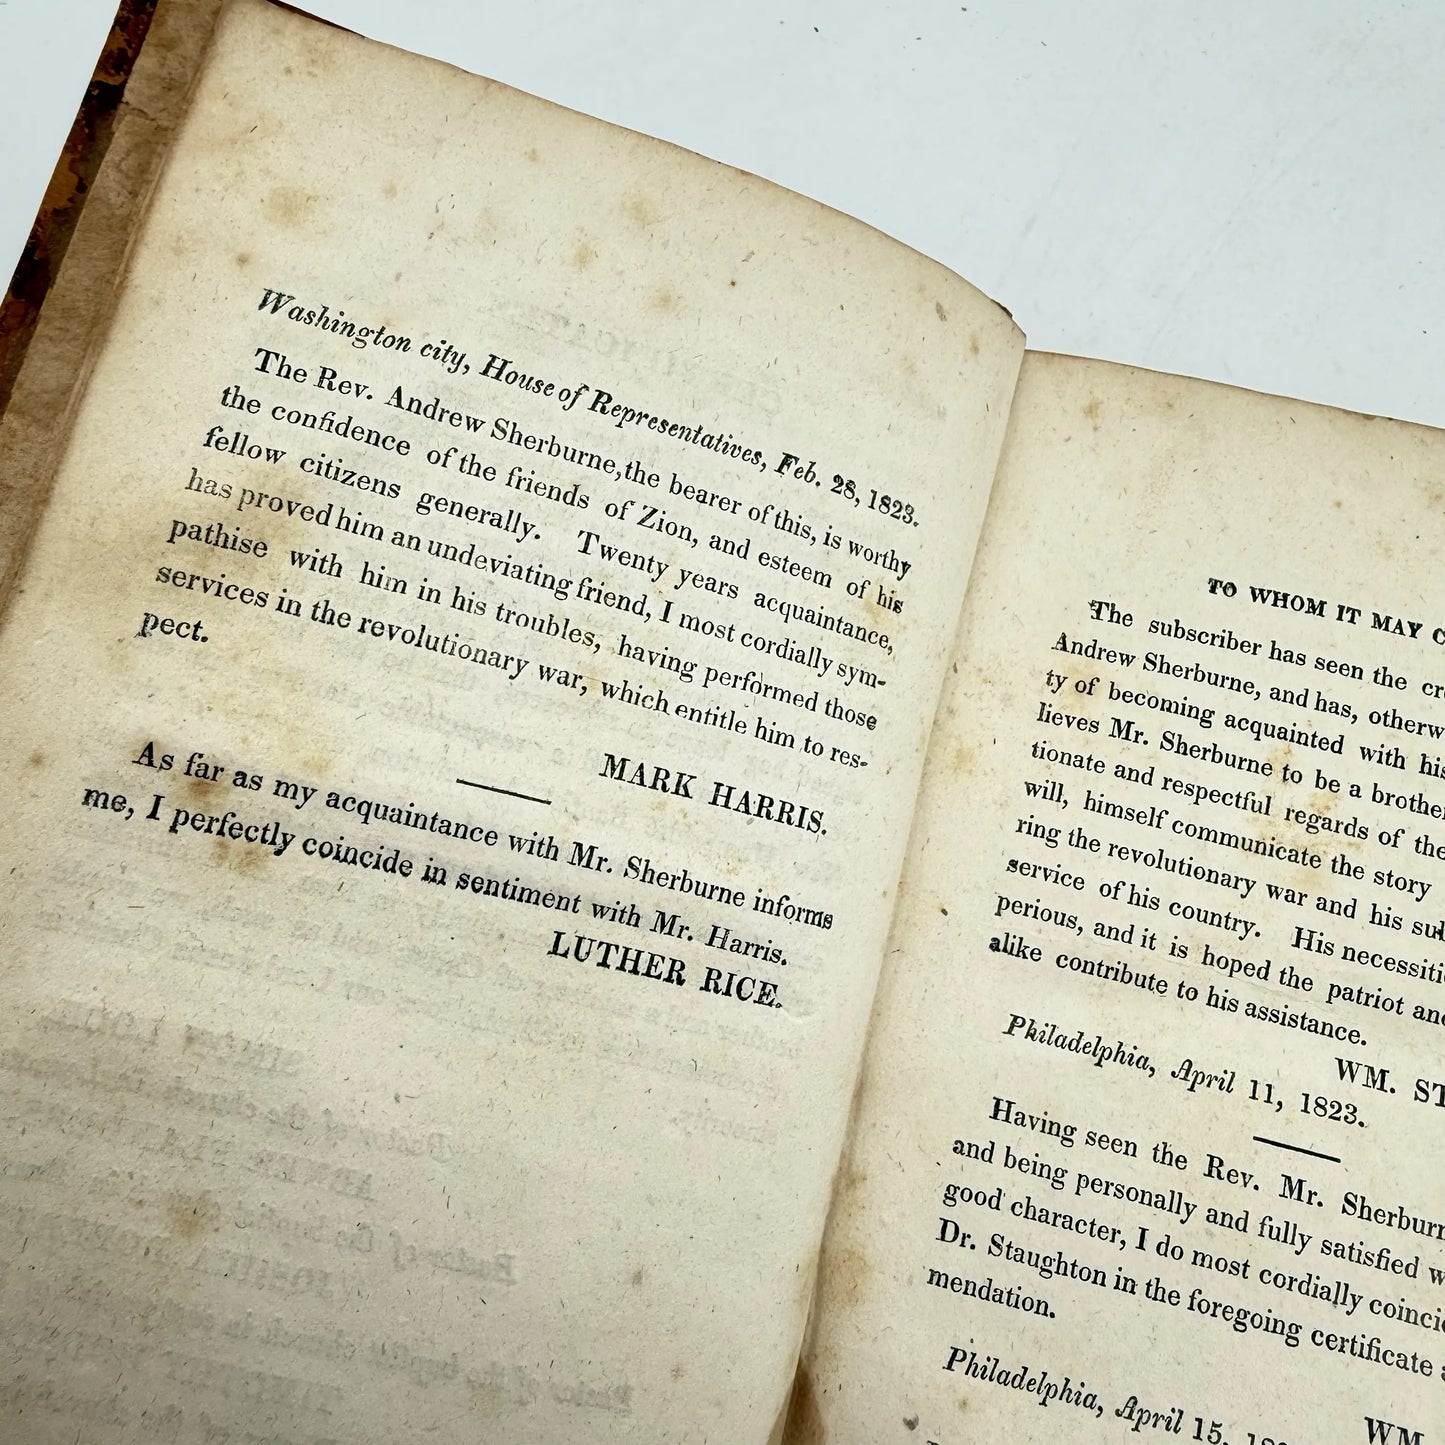 Washington city, House of Representatives, Feb. 28, 1823.
The Rev. Andrew Sherburne, the bearer of this, is worthy
the confidence of the friends of Zion, and esteem of his
fellow citizens generally. Twenty years acquaintance,
has proved him an undeviating friend, I most cordially sym-
pathise with him in his troubles, having performed those
services in the revolutionary war, which entitle him to res-
pect.
MARK HARRIS.
As far as my acquaintance with Mr. Sherburne informs
me, I perfectly coincide in sentiment with Mr. Harris.
LUTHER RICE.
TO WHOM IT MAY C
The subscriber has seen the cr
Andrew Sherburne, and has, otherw
ty of becoming acquainted with his
lieves Mr. Sherburne to be a brother
tionate and respectful regards of the
will, himself communicate the story
ring the revolutionary war and his su
service of his country. His necessiti
perious, and it is hoped the patriot and
alike contribute to his assistance.
WM. ST
Philadelphia, April 11, 1823.
Having seen the Rev. Mr. Sherburn
and being personally and fully satisfied w
good character, I do most cordially coinci
Dr. Staughton in the foregoing certificate a
mendation.
WM.
Philadelphia, April 15,